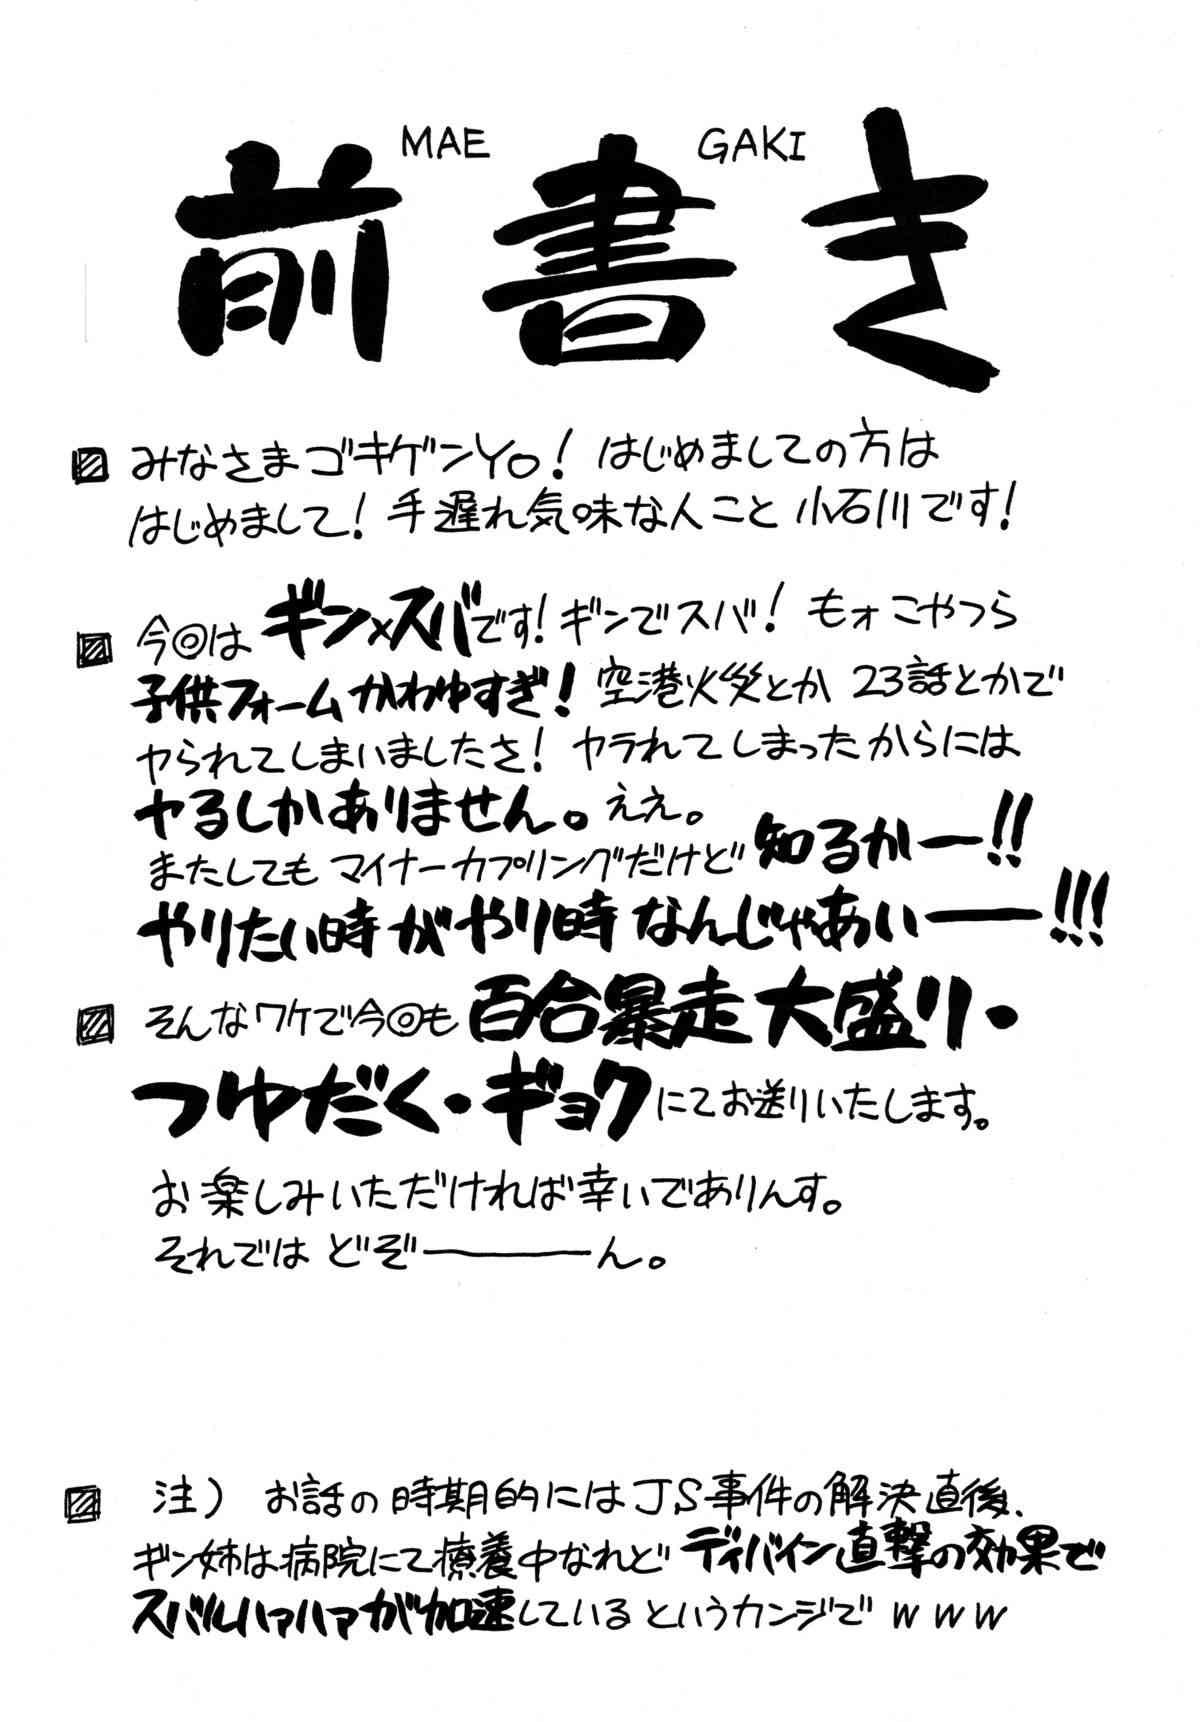 MAE GAKI
前書き
みなさまゴキゲンYO! はじめましての方は
はじめまして! 手遅れ気味な人こと 小石川です!
今◎は ギン×スバです! ギンでスバ! もォこやつら
子供フォームかわゆすぎ! 空港火災とか 23話とかで
ヤられてしまいましたさ! ヤラれてしまったからには
ヤるしかありません。ええ。
またしても マイナーカプリングだけど 知るかー!!
やりたい時がやり時なんじゃあいー!!!
そんなワケで今◎も 百合暴走大盛り・
つゆだく・ギョクにてお送りいたします。
お楽しみいただければ幸いでありんす。
それでは どぞーーん。
注) お話の時期的にはJS事件の解決直後、
ギン姉は病院にて療養中なれど ディバイン直撃の効果で
スバルハァハァが加速しているというカンジで www